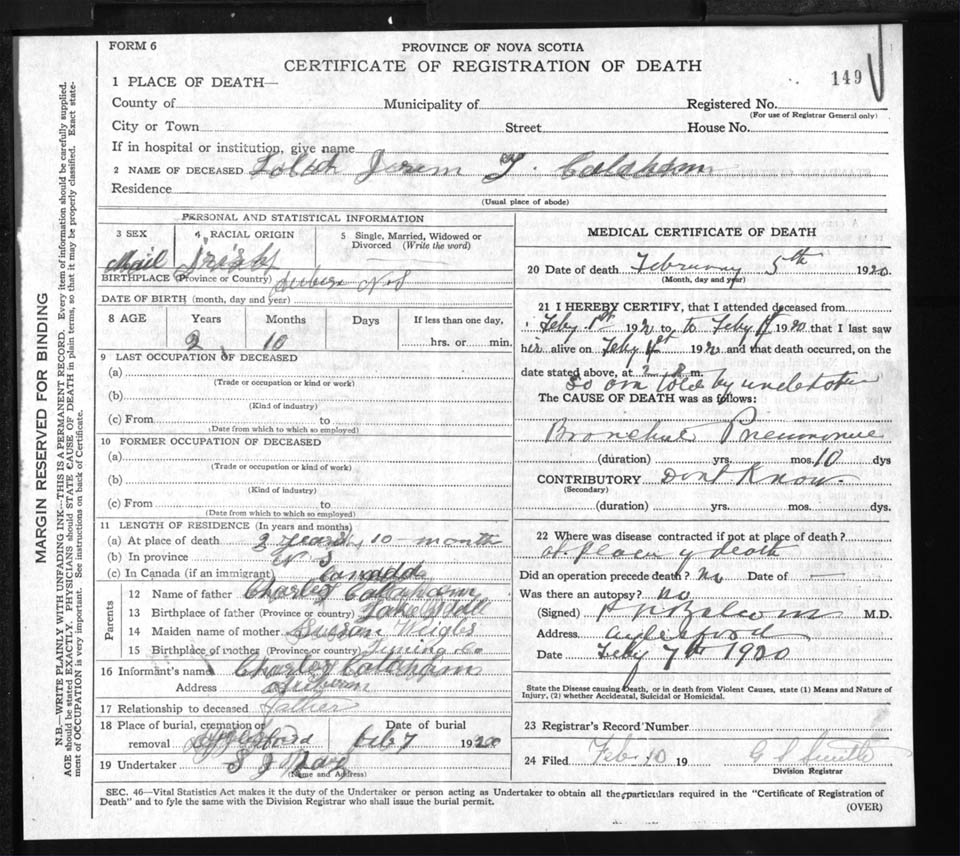 FORM 6
PROVINCE OF NOVA SCOTIA
CERTIFICATE OF REGISTRATION OF DEATH
149
1 PLACE OF DEATH—
County of Municipality of Registered No.
(For use of Registrar General only)
City or Town Street House No.
If in hospital or institution, give name
2 NAME OF DECEASED
Residence
(Usual place of abode)
PERSONAL AND STATISTICAL INFORMATION
3 SEX 4 RACIAL ORIGIN 5 Single, Married, Widowed or Divorced (Write the word)
Mail Irish
BIRTHPLACE (Province or Country) N S
DATE OF BIRTH (month, day and year)
8 AGE Years Months Days If less than one day,
2 10 hrs. or min.
9 LAST OCCUPATION OF DECEASED
(a)
(Trade or occupation or kind or work)
(b)
(Kind of industry)
(c) From to
(Date from which to which so employed)
10 FORMER OCCUPATION OF DECEASED
(a)
(Trade or occupation or kind of work)
(b)
(Kind of industry)
(c) From to
(Date from which to which so employed)
11 LENGTH OF RESIDENCE (In years and months)
(a) At place of death 2 years, 10 - month
(b) In province N S
(c) In Canada (if an immigrant) Canada
Parents
12 Name of father Charley
13 Birthplace of father (Province or country)
14 Maiden name of mother Susan
15 Birthplace of mother (Province or country)
16 Informant's name Charley
Address
17 Relationship to deceased father
18 Place of burial, cremation or removal Date of burial
Feb 7 1920
19 Undertaker S J
(Name and Address)
MEDICAL CERTIFICATE OF DEATH
20 Date of death February 5th 1920
(Month, day and year)
21 I HEREBY CERTIFY, that I attended deceased from
Feby 1st 1920 to Feby 1920 that I last saw
h alive on Feby 1920 and that death occurred, on the
date stated above, at m.
So am told by undertaker
The CAUSE OF DEATH was as follows:
Bronchial Pneumonia
(duration) yrs. mos. 10 dys
CONTRIBUTORY Dont Know
(Secondary)
(duration) yrs. mos. dys.
22 Where was disease contracted if not at place of death?
at place of death
Did an operation precede death? No Date of —
Was there an autopsy? No
(Signed) M.D.
Address
Date Feby 7th 1920
State the Disease causing Death, or in death from Violent Causes, state (1) Means and Nature of
Injury, (2) whether Accidental, Suicidal or Homicidal.
23 Registrar's Record Number
24 Filed Feb 10 19 G S Smith
Division Registrar
SEC. 46—Vital Statistics Act makes it the duty of the Undertaker or person acting as Undertaker to obtain all the particulars required in the "Certificate of Registration of
Death" and to fyle the same with the Division Registrar who shall issue the burial permit.
(OVER)
MARGIN RESERVED FOR BINDING
N.B.—WRITE PLAINLY WITH UNFADING INK—THIS IS A PERMANENT RECORD. Every item of information should be carefully supplied.
AGE should be stated EXACTLY. PHYSICIANS should STATE CAUSE OF DEATH in plain terms, so that it may be properly classified. Exact state-
ment of OCCUPATION is very important. See instructions on back of Certificate.